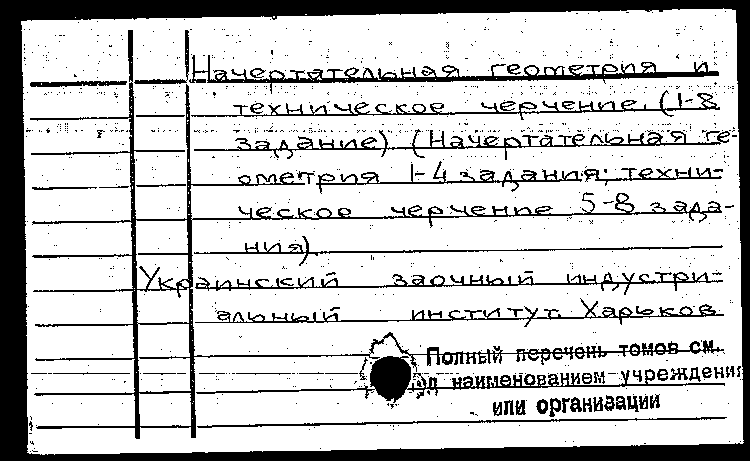 Начертательная геометрия и
техническое черчение. (1-8
задание) (Начертательная ге-
ометрия 1-4 задания; техни-
ческое черчение 5-8 зада-
ния).
Украинский заочный индустри-
альный институт. Харьков
Полный перечень томов см.
под наименованием учреждения
или организации